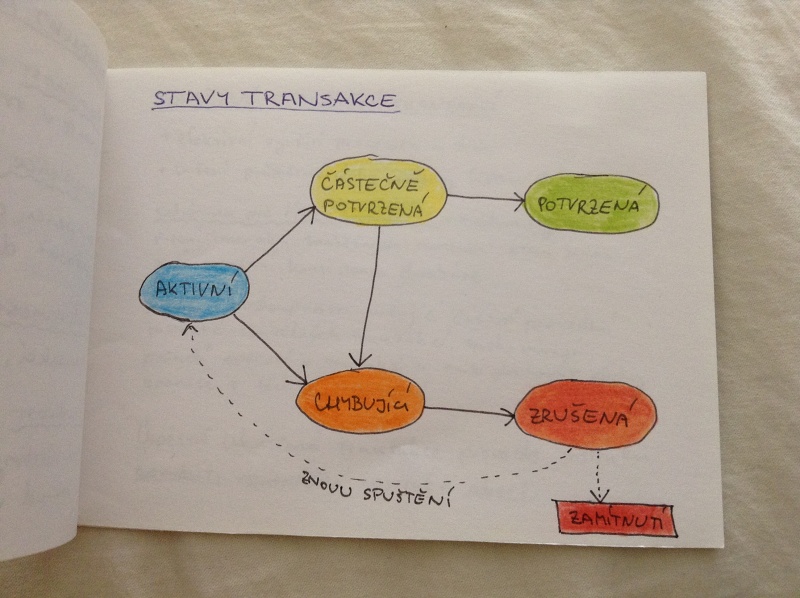 STAVY TRANSAKCE
ČÁSTEČNĚ
POTVRZENÁ
POTVRZENÁ
AKTIVNÍ
CHYBUJÍCÍ
ZRUŠENÁ
ZNOVU SPUŠTĚNÍ
ZAMÍTNUTÍ